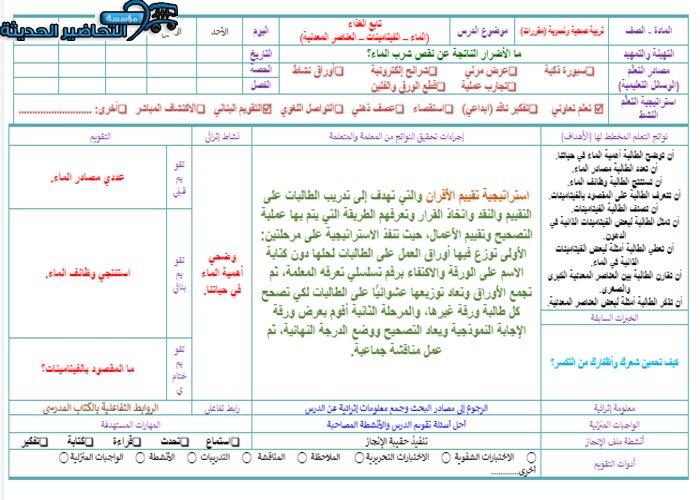 مؤسسة
التحاضير الحديثة
المادة ـ الصف
تربية صحية ونسوية (مقررات)
موضوع الدرس
تابع الغذاء
(الماء – الفيتامينات – العناصر المعدنية)
اليوم
الأحد
التهيئة والتمهيد
ما الأضرار الناتجة عن نقص شرب الماء؟
التاريخ
مصادر التعلم
(الوسائل التعليمية)
سبورة ذكية
عرض مرئي
شرائح إلكترونية
أوراق نشاط
تجارب عملية
قطع الورق والفلين
الحصة
الفصل
استراتيجية التعلم
النشط
تعلم تعاوني
تفكير ناقد (ابداعي)
استقصاء
عصف ذهني
التواصل اللغوي
التقويم البنائي
الاكتشاف المباشر
أخرى: ............................
نواتج التعلم المخطط لها (الأهداف)
إجراءات تحقيق النواتج من المعلمة والمتعلمة
نشاط إثرائي
التقويم
أن توضح الطالبة أهمية الماء في حياتنا.
أن تعدد الطالبة مصادر الماء.
أن تستنتج الطالبة وظائف الماء.
أن تتعرف الطالبة على المقصود بالفيتامينات.
أن تصنف الطالبة الفيتامينات.
أن تمثل الطالبة لبعض الفيتامينات الذائبة في
الدهون.
أن تعطي الطالبة أمثلة لبعض الفيتامينات
الذائبة في الماء.
أن تقارن الطالبة بين العناصر المعدنية الكبرى
والصغرى.
أن تذكر الطالبة أمثلة لبعض العناصر المعدنية.
الخبرات السابقة
كيف تحمين شعرك وأظفارك من التكسر؟
استراتيجية تقييم الأقران والتي تهدف إلى تدريب الطالبات على
التقييم والنقد واتخاذ القرار وتعرفهم الطريقة التي يتم بها عملية
التصحيح وتقييم الأعمال، حيث تنفذ الاستراتيجية على مرحلتين:
الأولى توزع فيها أوراق العمل على الطالبات لحلها دون كتابة
الاسم على الورقة والاكتفاء برقم تسلسلي تعرفه المعلمة، ثم
تجمع الأوراق وتعاد توزيعها عشوائيًا على الطالبات لكي تصحح
كل طالبة ورقة غيرها، والمرحلة الثانية أقوم بعرض ورقة
الإجابة النموذجية ويعاد التصحيح ووضع الدرجة النهائية، ثم
عمل مناقشة جماعية.
وضحي
أهمية الماء
في حياتنا.
تقو
يم
قبلي
عددي مصادر الماء.
تقو
يم
بنائي
استنتجي وظائف الماء.
تقو
يم
ختام
ي
ما المقصود بالفيتامينات؟
معلومة إثرائية
الرجوع إلى مصادر البحث وجمع معلومات إثرائية عن الدرس
رابط تفاعلي
الروابط التفاعلية بالكتاب المدرسي
الواجبات المنزلية
أحل أسئلة تقويم الدرس والأنشطة المصاحبة
المهارات المستهدفة
أنشطة ملف الإنجاز
تنفيذ حقيبة الإنجاز
استماع
تحدث
قراءة
كتابة
تفكير
أدوات التقويم
الاختبارات الشفوية
الاختبارات التحريرية
الملاحظة
المناقشة
التدريبات
الأنشطة
الواجبات المنزلية
أخرى.............